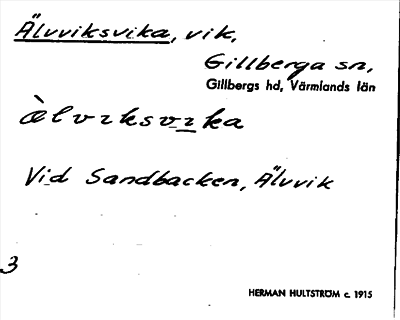 Älvviksvika, vik,
Gillberga sn,
Gillbergs hd, Värmlands län
àelvıksvıka
Vid Sandbacken, Älvvik
3
HERMAN HULTSTRÖM c. 1915